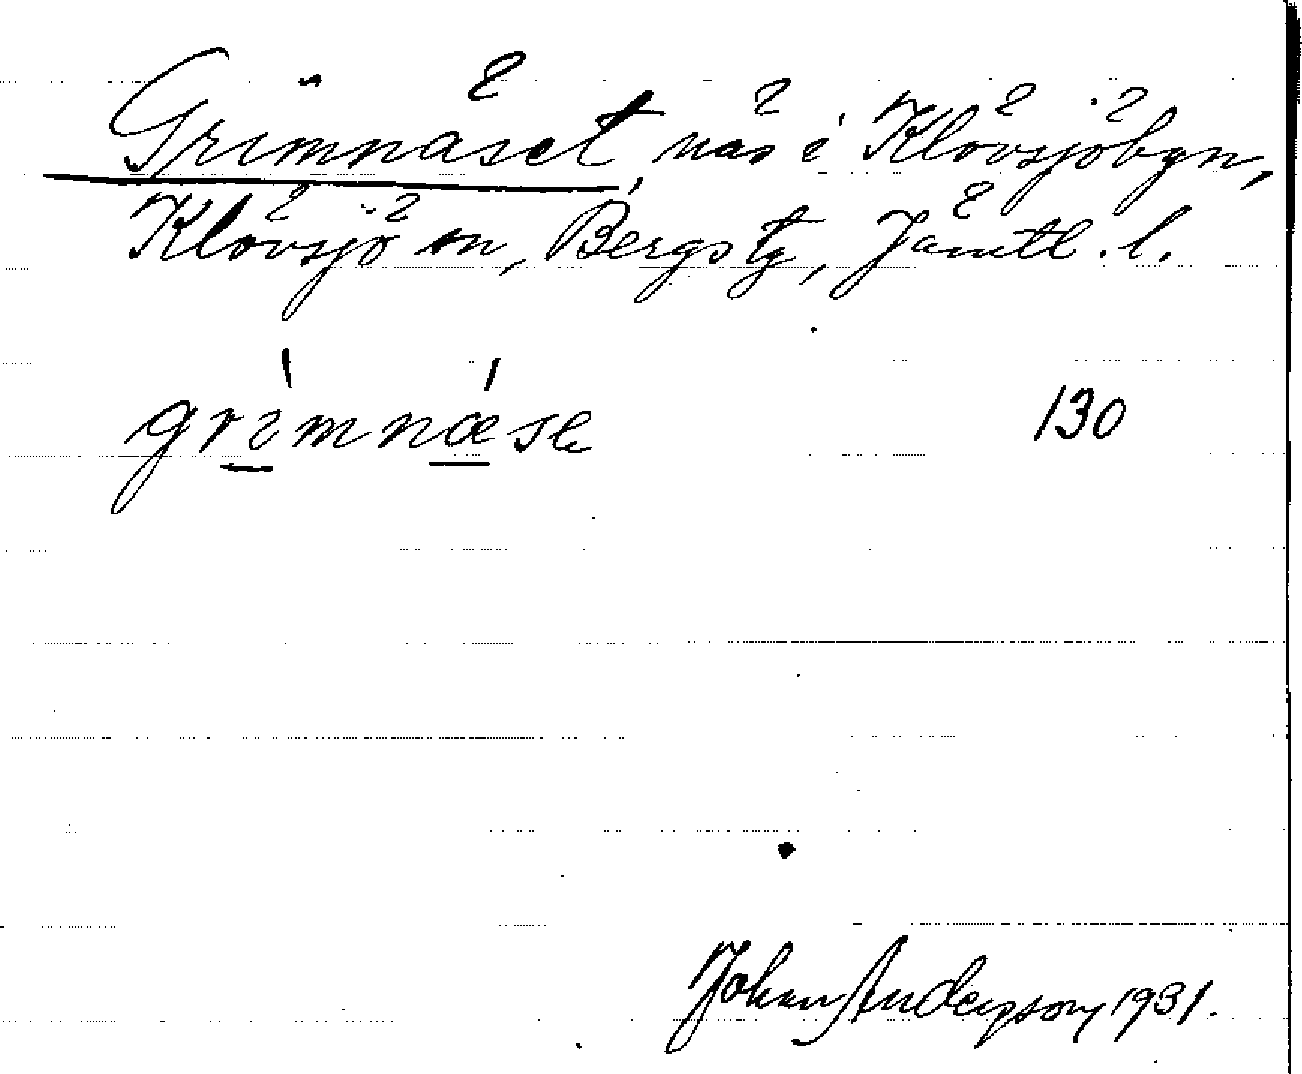 Grimnäset, näs i Klövsjöbyn,
Klövsjö sn, Bergs tg, Jämtl. l.
grìmnæ̀sɛ 130
Johan Anderson 1931.